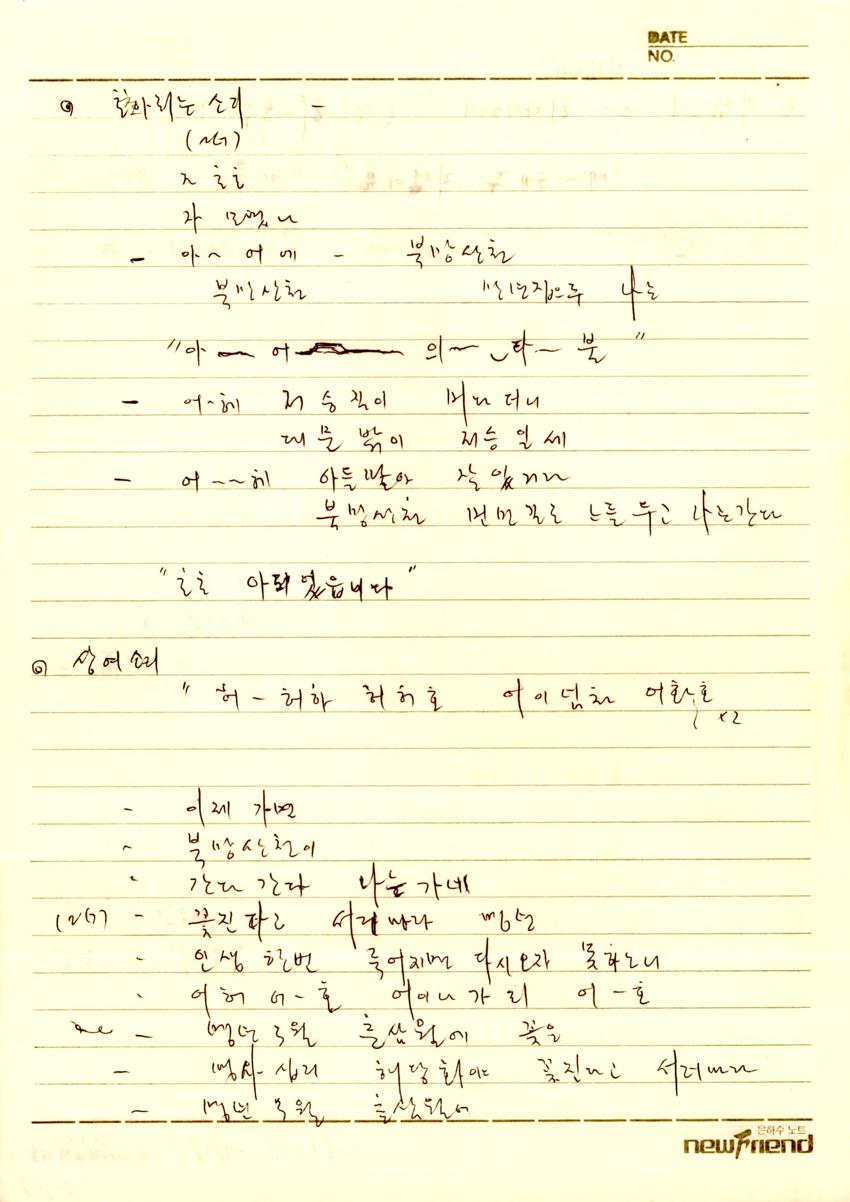 DATE
NO.
소리 -
- 아~ 어 에 - 북망산천
북망산천 만년집으로 나는
"아 — 어 — 의~ 타~ 불"
- 어~헤 저승길이 머다더니
대문밖이 저승일세
- 어~~헤 아들딸아 잘있거라
북망산천 먼먼길로 두고 나는간다
되었읍니다"
상여소리
" 허 - 허하 허허호 어이넘차 어화호
x2
- 이제가면
~ 북망산천이
- 간다 간다 나는 가네
- 꽃진다고 서러마라 명년
- 인생 한번 죽어지면 다시오자 못하노니
- 어허 어-호 어이나가리 어-호
- 명년 3월 춘삼월에 꽃은
- 명사십리 해당화야 꽃진다고 서러마라
- 명년 3월 춘삼월에
은하수 노트
newfriend